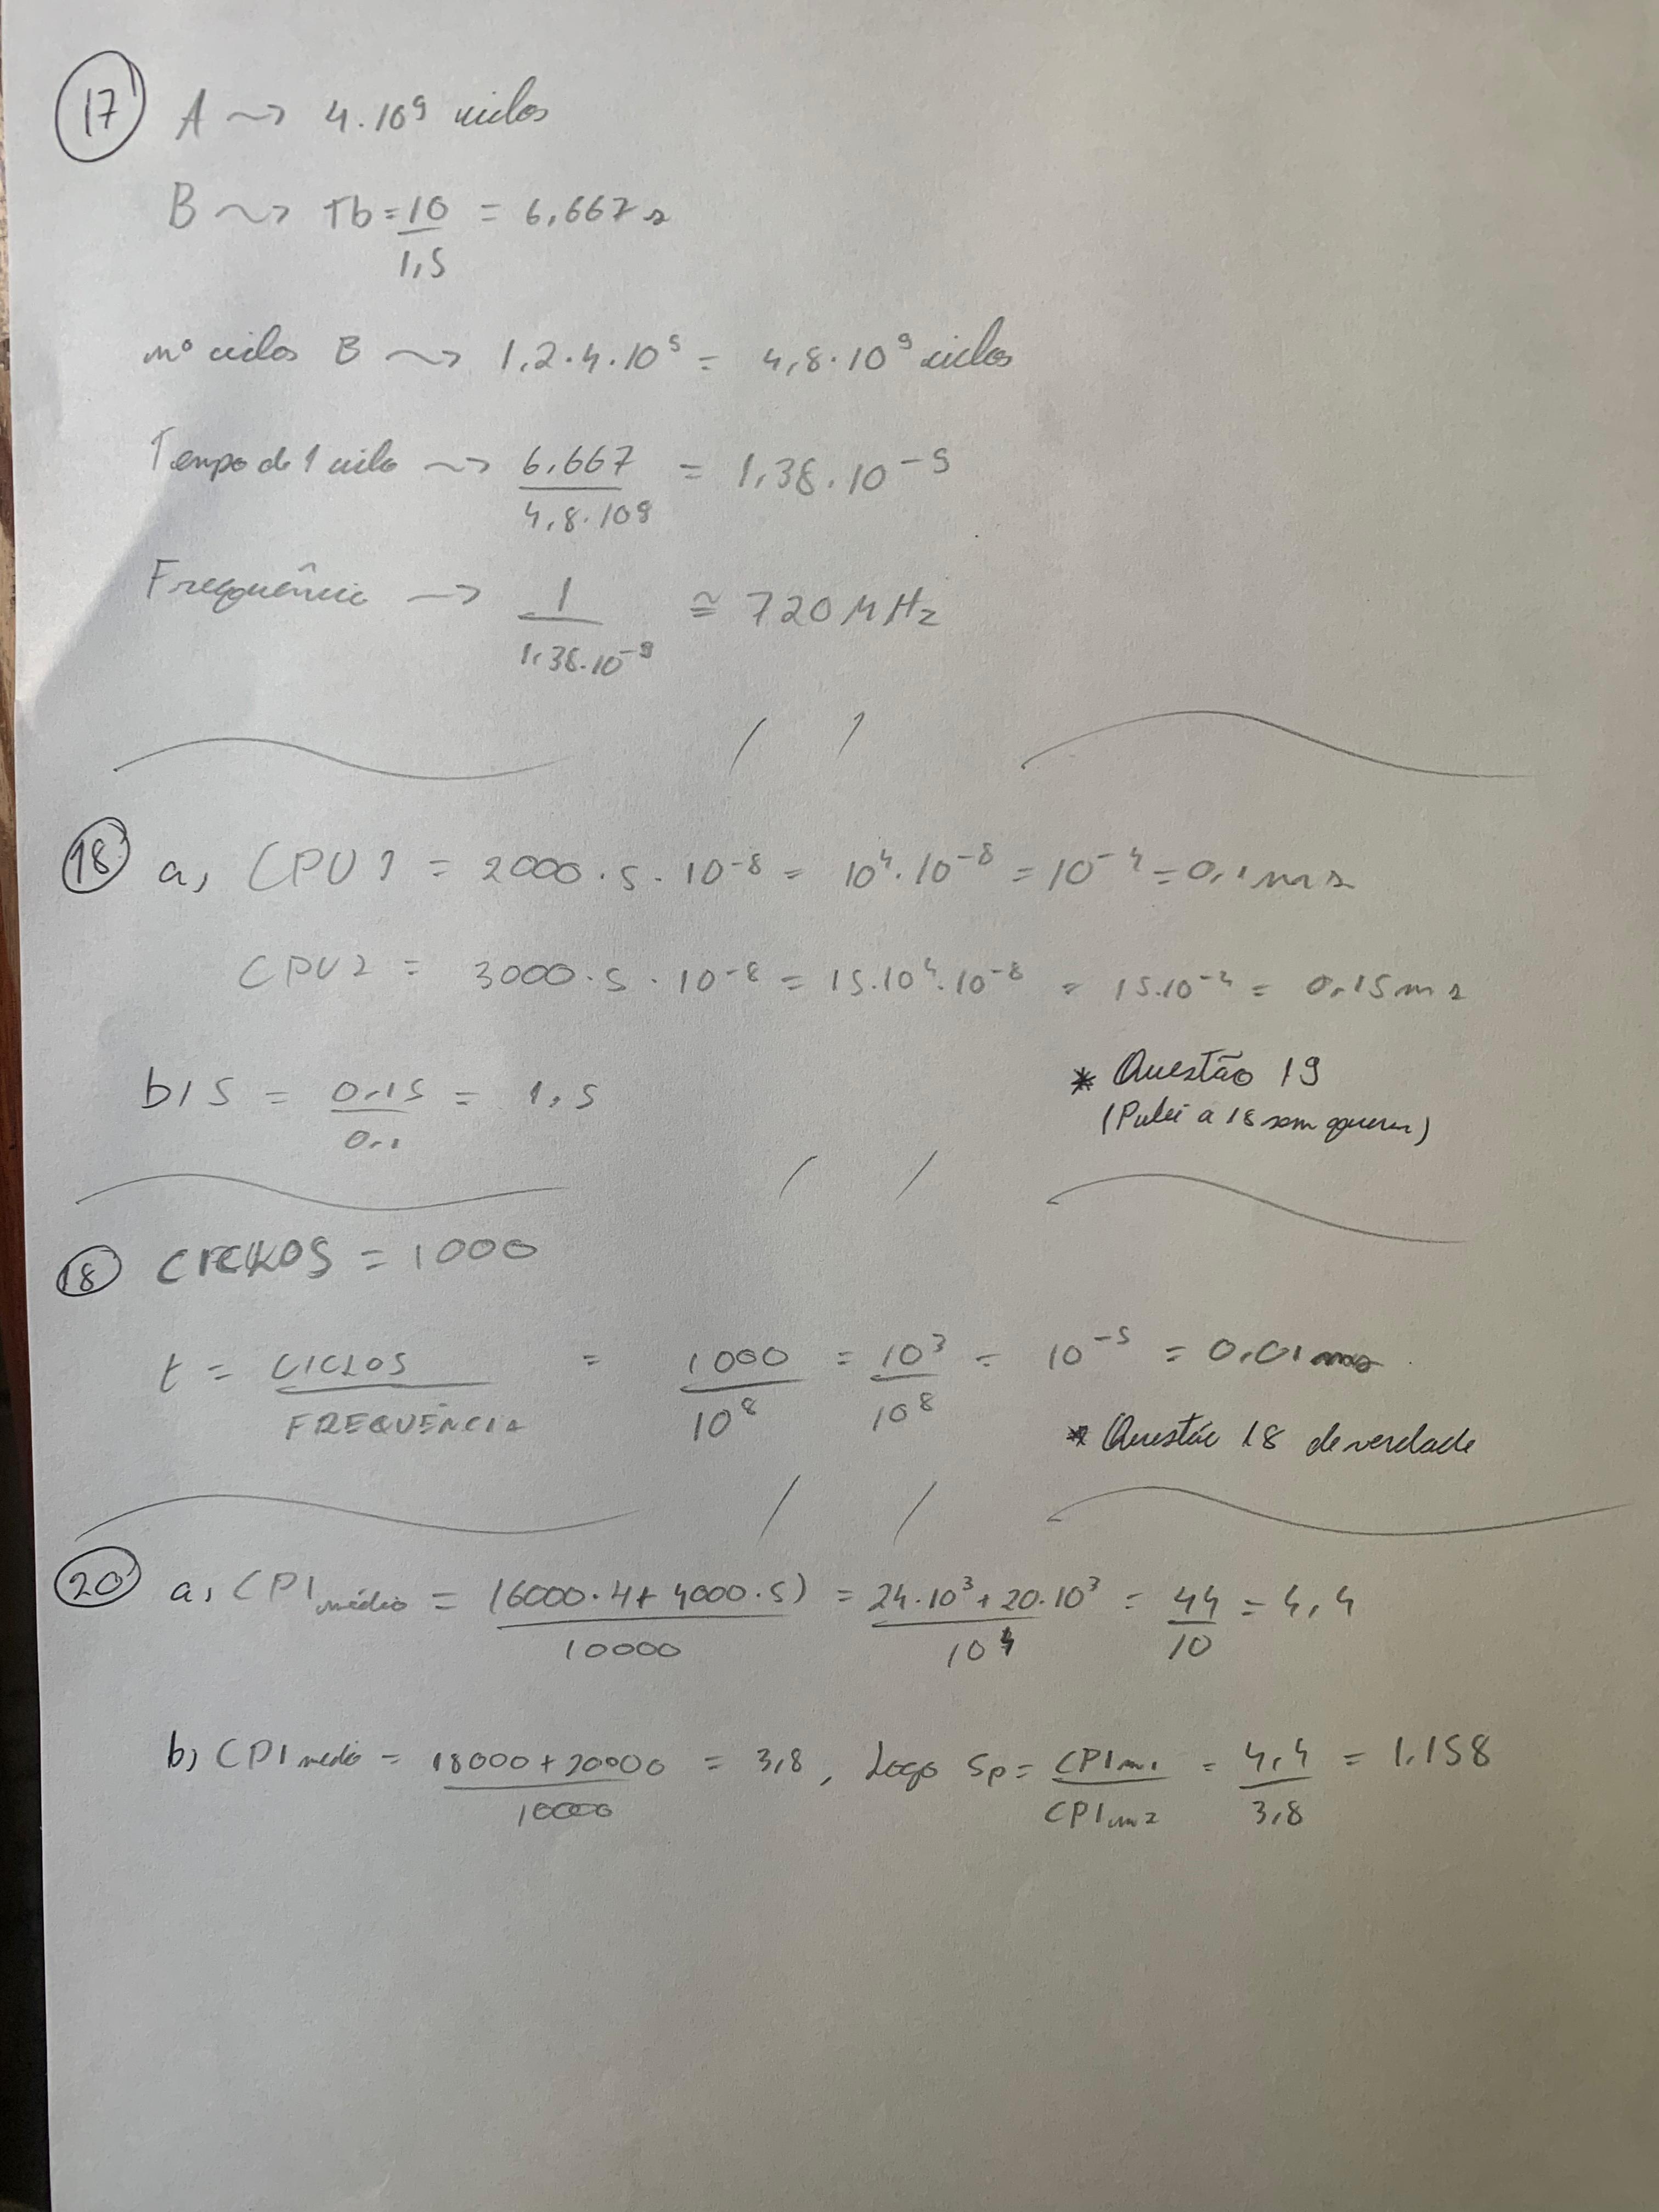 17 A ~> 4.10⁹ ciclos
B ~> Tb = 10/1,5 = 6,667 s
nº ciclos B ~> 1,2 . 4 . 10⁹ = 4,8 . 10⁹ ciclos
Tempo de 1 ciclo ~> 6,667/4,8.10⁹ = 1,38.10⁻⁹
Frequência ~> 1/1,38.10⁻⁹ ≅ 720 MHz
18 a, CPU1 = 2000 . 5 . 10⁻⁸ = 10⁴.10⁻⁸ = 10⁻⁴ = 0,1 ms
CPU2 = 3000 . 5 . 10⁻⁸ = 15.10⁴.10⁻⁸ = 15.10⁻⁴ = 0,15 ms
b) S = 0,15/0,1 = 1,5
* Questão 19
(Pulei a 18 sem querer)
18 CICLOS = 1000
t = CICLOS/FREQUÊNCIA = 1000/10⁸ = 10³/10⁸ = 10⁻⁵ = 0,01 ms
* Questão 18 de verdade
20 a, CPI médio = (6000.4 + 4000.5)/10000 = 24.10³ + 20.10³/10⁴ = 44/10 = 4,4
b) CPI medio = 18000 + 20000/10000 = 3,8, Logo Sp = CPI m1/CPI m2 = 4,4/3,8 = 1,158